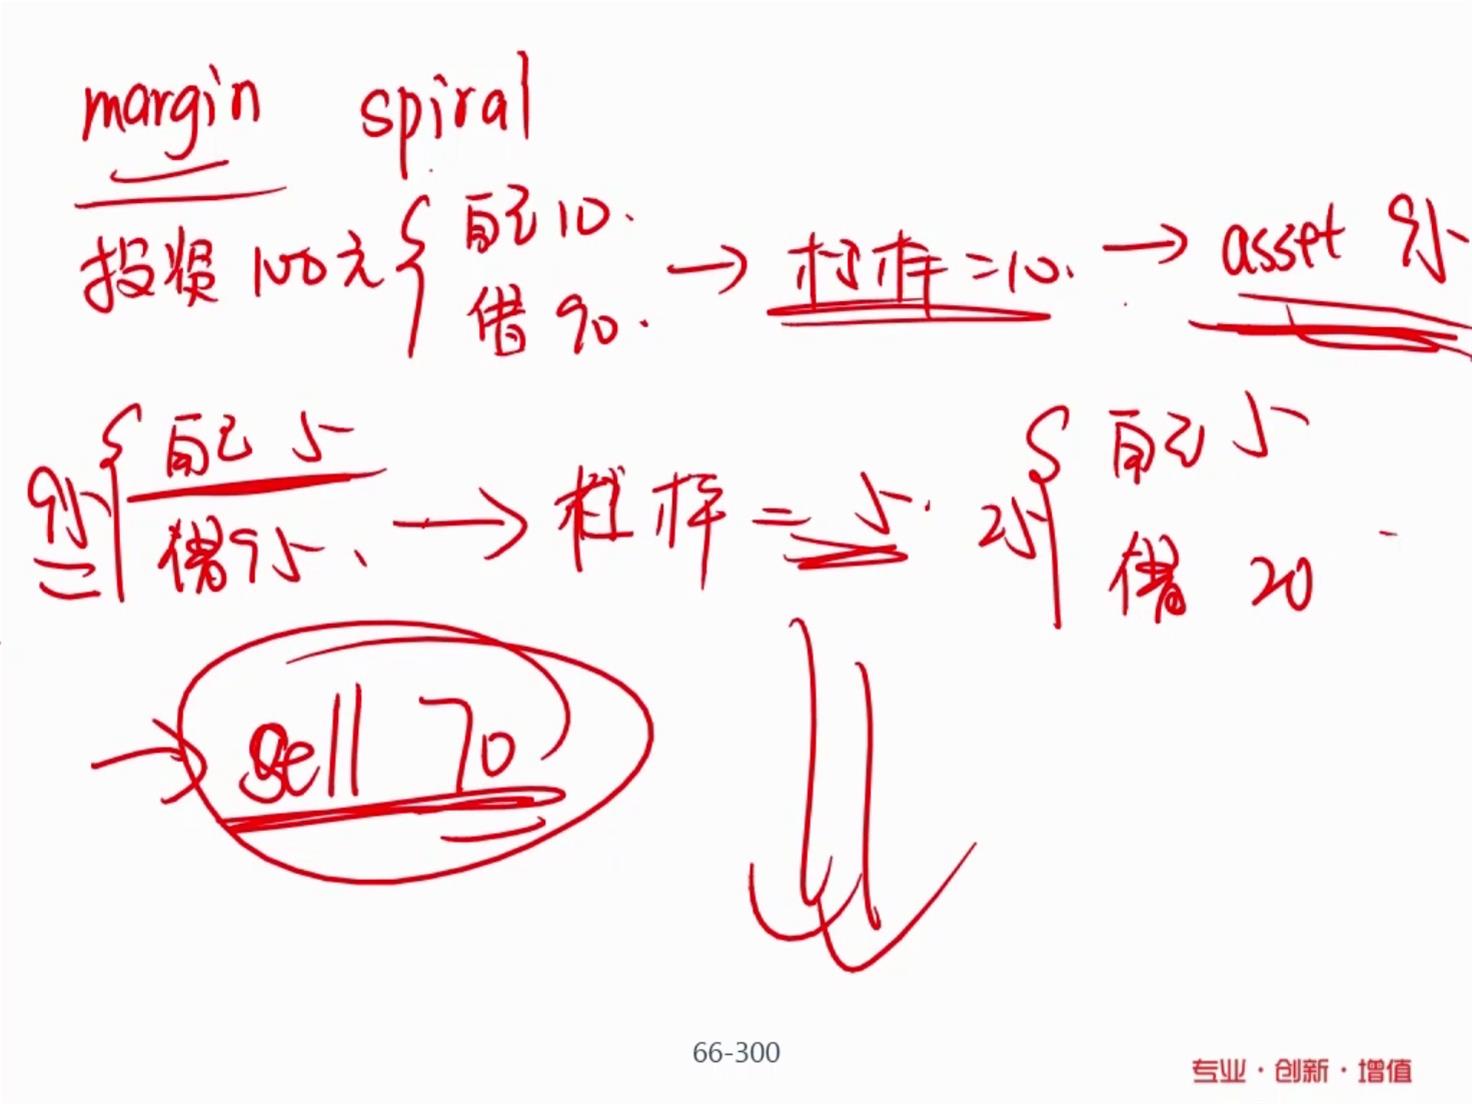 margin spiral
投资 100元 { 自己 10.
借 90.
→ 杠杆 = 10. → asset 95
95 { 自己 5
借 95.
→ 杠杆 = 5.
25 { 自己 5
借 20
→ sell 70
66-300
专业·创新·增值